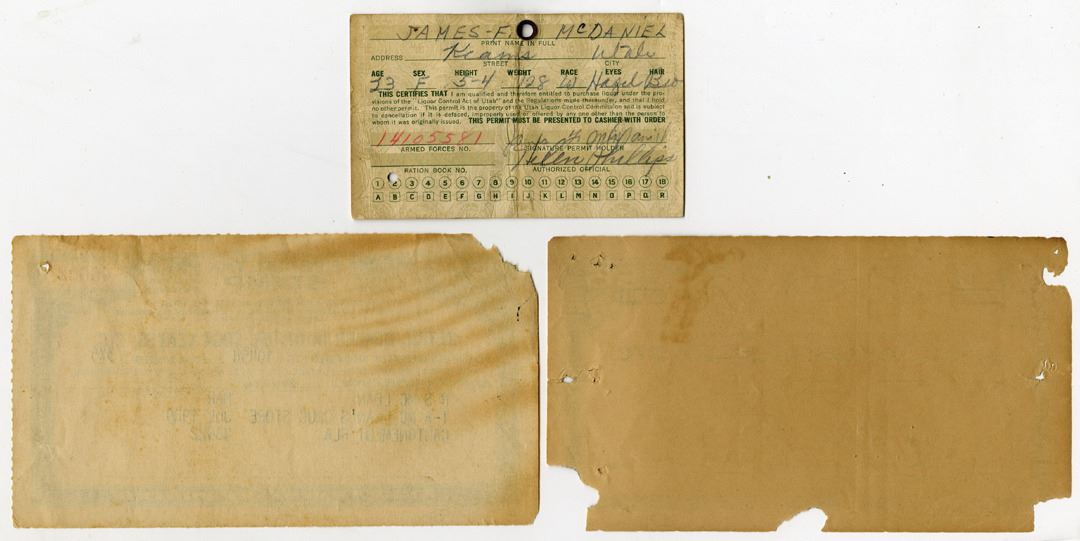 JAMES-F. McDANIEL
PRINT NAME IN FULL
ADDRESS Kearns Utah
STREET CITY
AGE SEX HEIGHT WEIGHT RACE EYES HAIR
23 F 5-4 128 W Hazel Bro
THIS CERTIFIES THAT I am qualified and therefore entitled to purchase liquor under the pro-
visions of the "Liquor Control Act of Utah" and the Regulations made thereunder, and that I hold
no other permit. This permit is the property of the Utah Liquor Control Commission and is subject
to cancellation if it is defaced, improperly used or offered by any one other than the person to
whom it was originally issued. THIS PERMIT MUST BE PRESENTED TO CASHIER WITH ORDER
14105581
ARMED FORCES NO. SIGNATURE PERMIT HOLDER
Helen Phillips
RATION BOOK NO. AUTHORIZED OFFICIAL
1 2 3 4 5 6 7 8 9 10 11 12 13 14 15 16 17 18
A B C D E F G H I J K L M N O P Q R